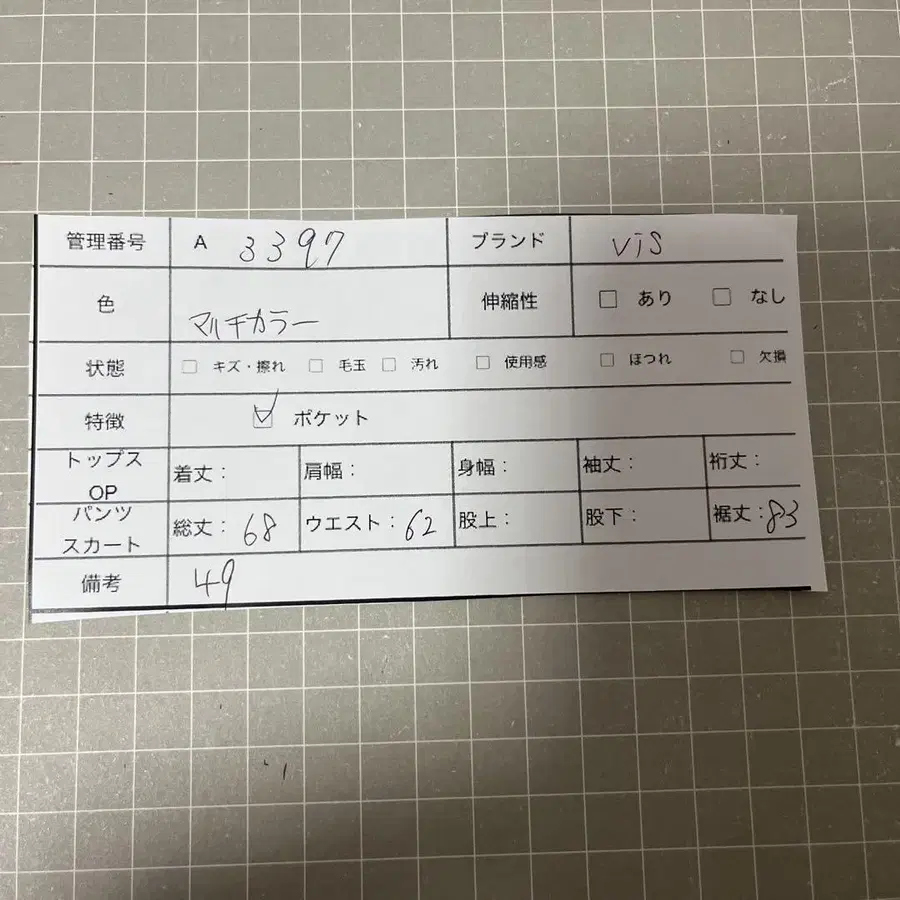 管理番号 A 3397 ブランド ViS
色 マルチカラー 伸縮性 □ あり □ なし
状態 □ キズ・擦れ □ 毛玉 □ 汚れ □ 使用感 □ ほつれ □ 欠損
特徴 ☑ ポケット
トップス OP 着丈： 肩幅： 身幅： 袖丈： 裄丈：
パンツ スカート 総丈：68 ウエスト：62 股上： 股下： 裾丈：83
備考 49